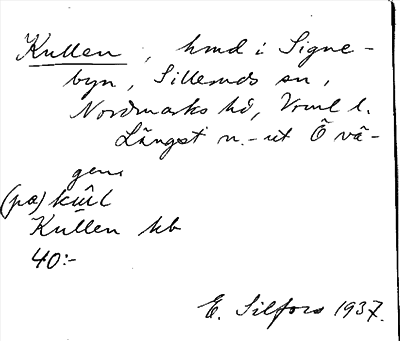 Kullen, hmd i Signe-
byn, Silleruds sn,
Nordmarks hd, Vrml l.
Längst n.-ut Ö vä-
gen.
(pœ) kûl
Kullen kb
40:-
E. Silfors 1937.